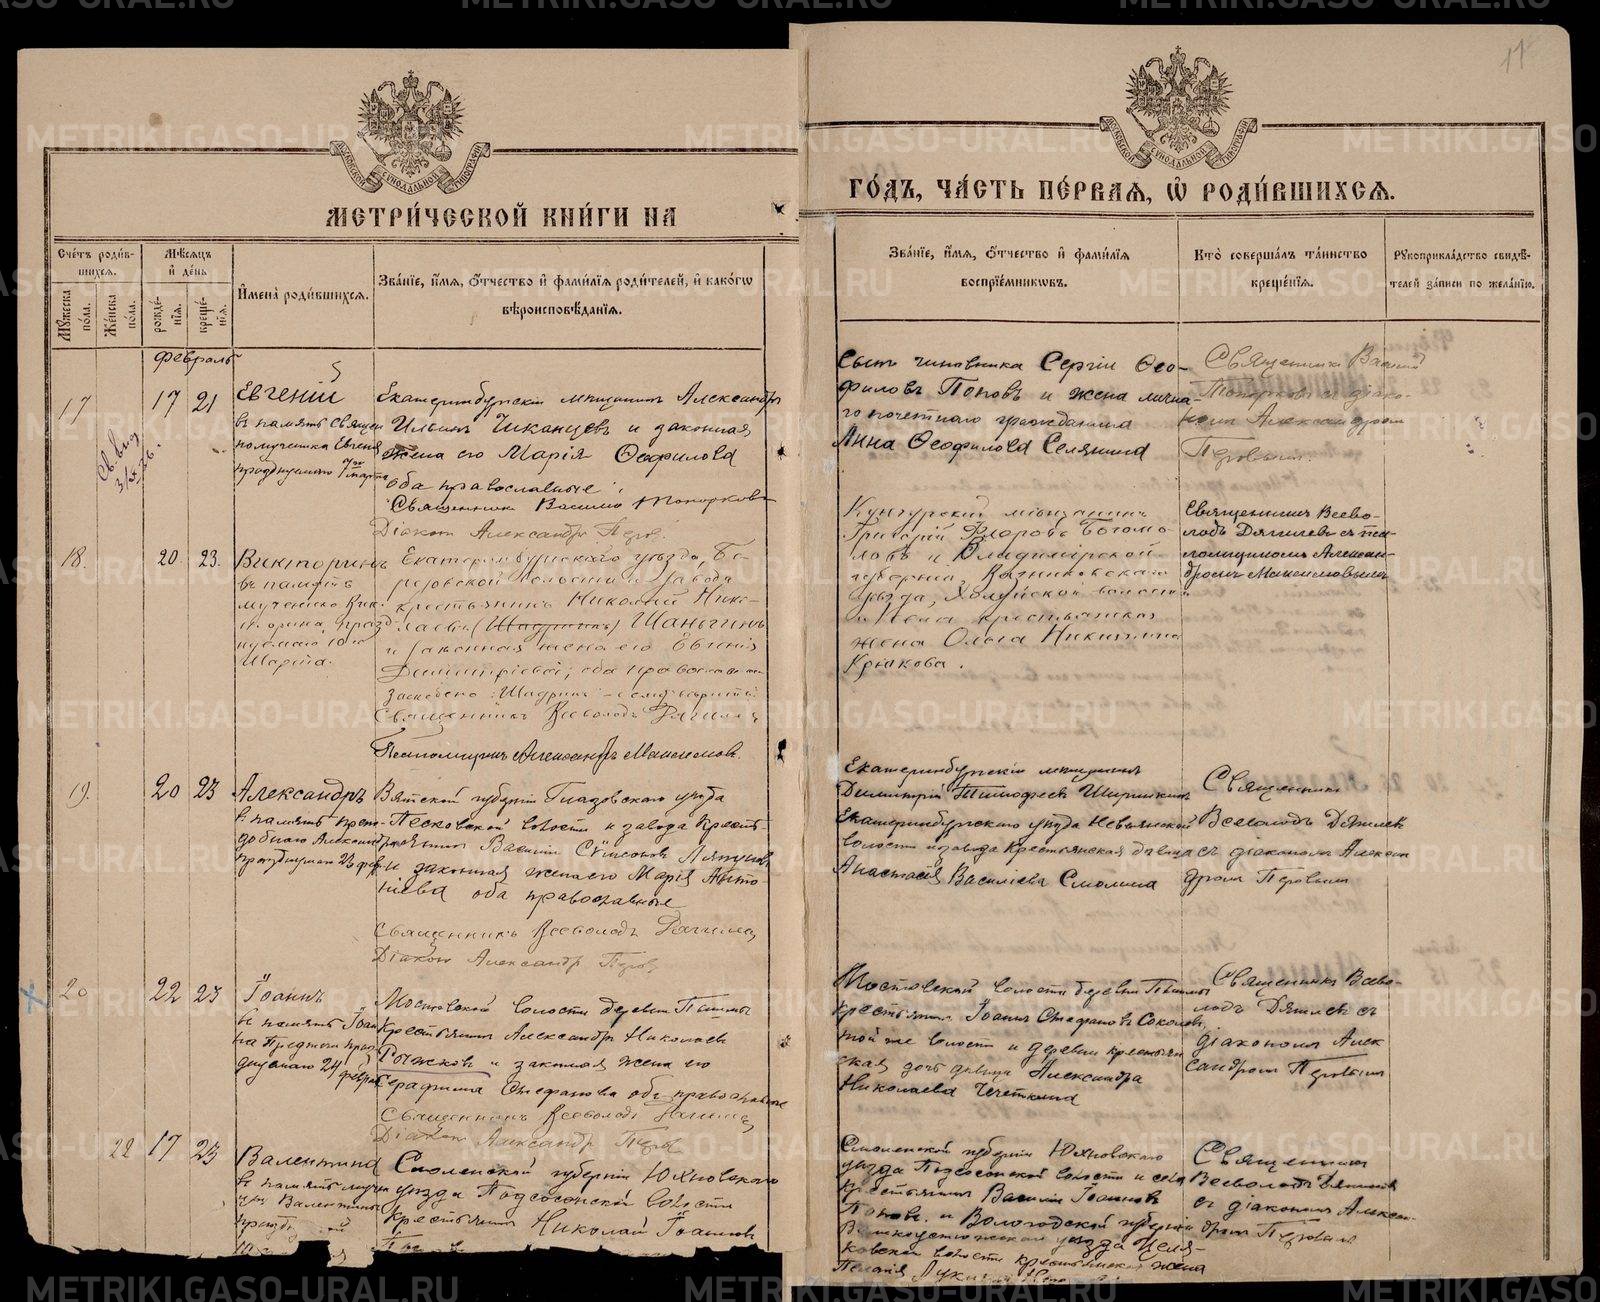 МЕТРИ́ЧЕСКОЙ КНИ́ГИ НА
Счётъ роди́в-
шихся.
Мѣ́сяцъ
и҆ де́нь
Мꙋ́жеска
по́ла.
Же́нска
по́ла.
рожде́-
нїѧ.
креще́-
нїѧ.
И҆мена̀ роди́вшихся.
Зва́нїе, и҆́мѧ, ѻ҆́тчество и҆ фами́лїѧ роди́телей, и҆ како́гѡ
вѣроисповѣ́данїѧ.
Февраль
17 17 21
Евгеній
въ память священ
номученика Евгенія
празднуемаго 7го марта
Екатеринбургскій мѣщанинъ Александръ
Ильинъ Чиканцевъ и законная
жена его Марія Ѳеофилова
оба православные
Священникъ Василій Топорковъ
Діаконъ Александръ Перов
18. 20 23.
Викторинъ
въ память
мученика Вик-
торина, празд
нуемаго 10го
Марта.
Екатеринбургскаго уѣзда, Бе-
резовской волости и завода
крестьянинъ Николай Нико-
лаевъ (Шадринъ) Шаньгинъ
и законная жена его Евгенія
Димитріева; оба православные
Священникъ Всеволодъ Дягилев
Псаломщикъ Александръ Максимовъ.
19. 20 23
Александръ
въ память препо-
добнаго Александра
празднуемаго 23 фев
Вятской губерніи Глазовскаго уѣзда
Песковской волости и завода кресть-
янинъ Василій Сѵмеоновъ Ляпуновъ
и законная жена его Марія Анто-
ніева оба православные
Священникъ Всеволодъ Дягилев
Діаконъ Александръ Перов
20 22 23
Іоаннъ
въ память Іоан
на Предтечи праз
днуемаго 24 февраля
Мостовской волости деревни Пышмы
крестьянинъ Александръ Николаевъ
Рычковъ и законная жена его
Серафима Стефанова оба православные
Священникъ Всеволодъ Дягилев
Діаконъ Александръ Перов
22 17 23
Валентина
въ память мучени
цы Валентины
празд
Смоленской губерніи Юхновскаго
уѣзда Подсосенской волости
крестьянинъ Николай Іоанновъ
11
ГО́ДЪ, ЧА́СТЬ ПЕ́РВАѦ, Ѡ҆ РОДИ́ВШИХСѦ.
Зва́нїе, и҆́мѧ, ѻ҆́тчество и҆ фами́лїѧ
воспрїе́мникѡвъ.
Кто̀ соверша́лъ та́инство
креще́нїѧ.
Рꙋкоприкла́дство свидѣ́-
телей за́писи по жела́нїю.
Сынъ чиновника Сергій Ѳео-
филовъ Поповъ и жена лична-
го почетнаго гражданина
Анна Ѳеофилова Селянина
Священникъ Василій
Топорковъ съ діако-
номъ Александромъ
Перовымъ.
Кунгурскій мѣщанинъ
Григорій Флоровъ Богомо-
ловъ и Владимірской
губерніи, Вязниковскаго
уѣзда, Холуйской волости
крестьянская
жена Ольга Никитина
Крюкова.
Священникъ Всево-
лодъ Дягилевъ съ пса-
ломщикомъ Алексан-
дромъ Максимовымъ
Екатеринбургскій мѣщанинъ
Димитрій Тимофеевъ Ширинкинъ
Екатеринбургскаго уѣзда Невьянской
волости и завода крестьянская дѣвица
Анастасія Василіева Смолина
Священникъ
Всеволодъ Дягилевъ
съ діакономъ Алексан
дромъ Перовымъ
Мостовской волости деревни Пышмы
крестьянинъ Іоаннъ Стефановъ Соколовъ
той же волости и деревни крестьян
ская дочь дѣвица Александра
Николаева Чечеткина
Священникъ Всево-
лодъ Дягилевъ съ
діакономъ Алек
сандромъ Перовымъ
Смоленской губерніи Юхновскаго
уѣзда Подсосенской волости и села
крестьянинъ Василій Іоанновъ
Поповъ и Вологодской губерніи
Великоустюжскаго уѣзда
ковской волости крестьянская жена
Пелагія
Священникъ
Всеволодъ Дягилевъ
съ діакономъ Алексан-
дромъ Перовымъ
METRIKI.GASO-URAL.RU